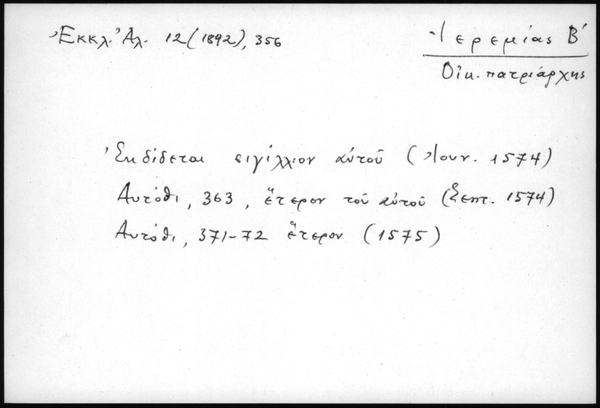 Ἐκκλ. Ἀλ. 12 (1892), 356
Ἱερεμίας Β΄
Οἰκ. πατριάρχης
Ἐκδίδεται σιγίλλιον αὐτοῦ (Ἰουν. 1574)
Αὐτόθι, 363, ἕτερον τοῦ αὐτοῦ (Σεπτ. 1574)
Αὐτόθι, 371-72 ἕτερον (1575)